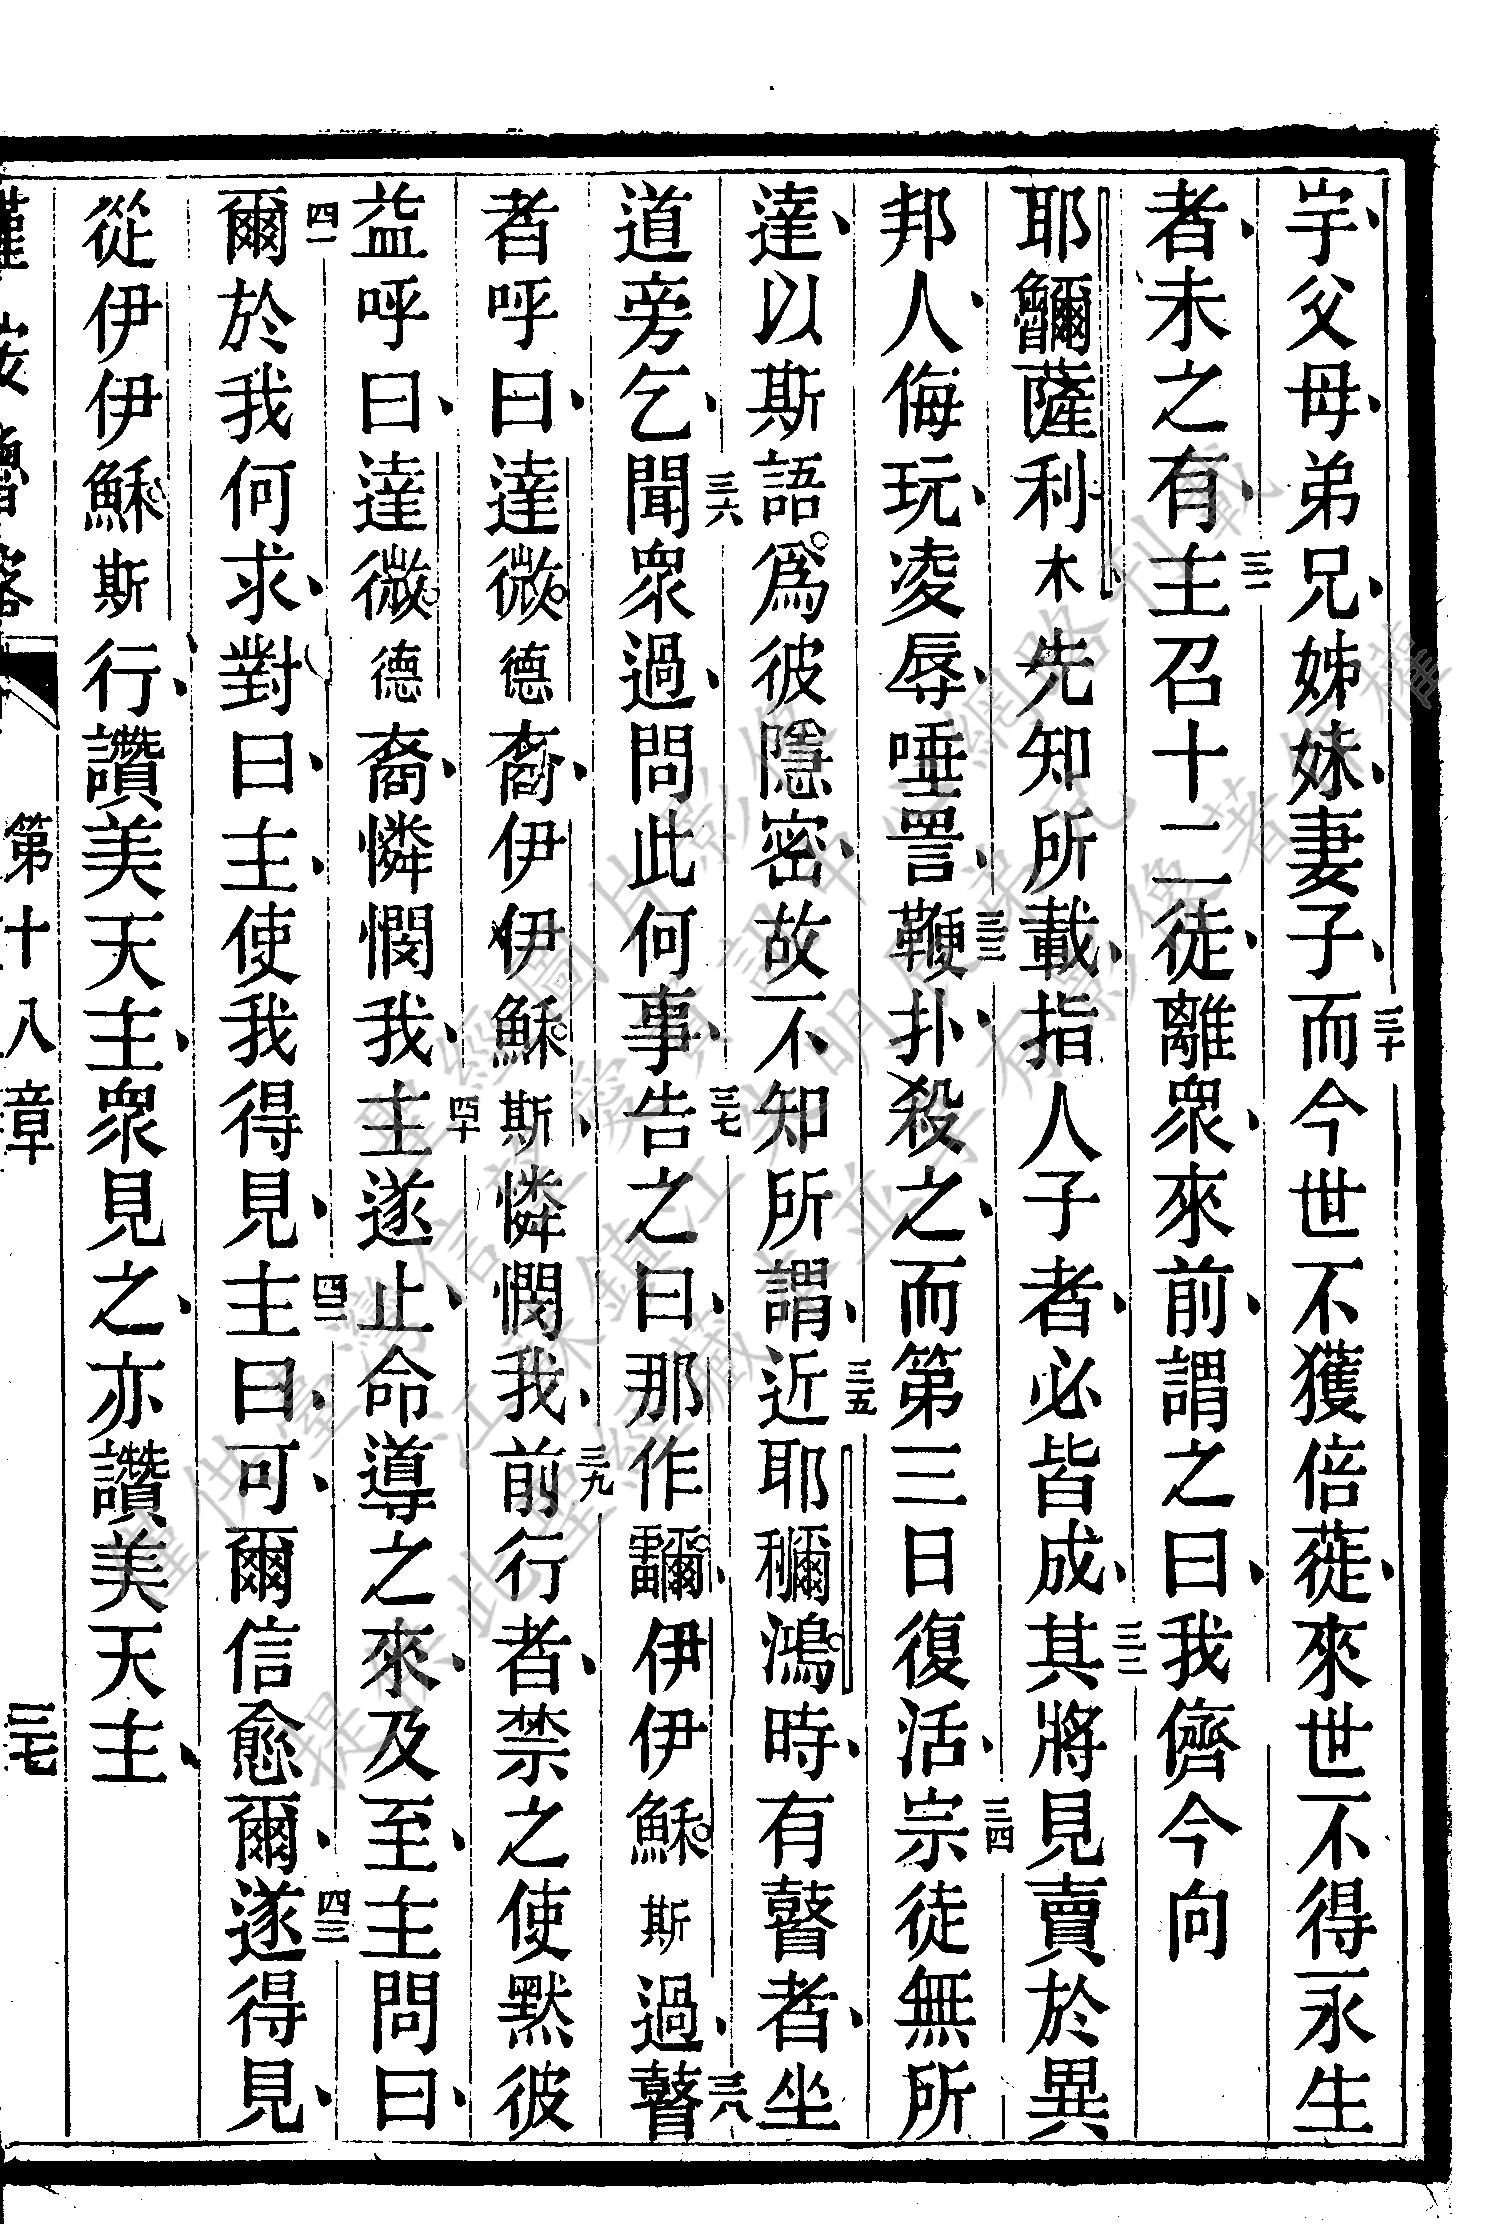 宇、父母、弟兄、姊妹、妻子、三十而今世不獲倍蓰、來世不得永生
者、未之有、三一主召十二徒、離衆、來前、謂之曰、我儕今向
耶䱾薩利木、先知所載、指人子者、必皆成、三二其將見賣於異
邦人、侮玩、凌辱、唾詈、三三鞭扑、殺之、而第三日復活、三四宗徒無所
達、以斯語爲彼隱密、故不知所謂、三五近耶穪鴻時、有瞽者、坐
道旁乞、三六聞衆過、問此何事、三七告之曰、那作、伊伊穌斯過、三八瞽
者呼曰、達微德裔、伊伊穌斯、憐憫我、三九前行者、禁之使默、彼
益呼曰、達微德裔、憐憫我、四十主遂止、命導之來、及至、主問曰、
四一爾於我何求、對曰、主、使我得見、四二主曰、可、爾信愈爾、四三遂得見、
從伊伊穌斯行、讚美天主、衆見之、亦讚美天主、
第十八章 三七